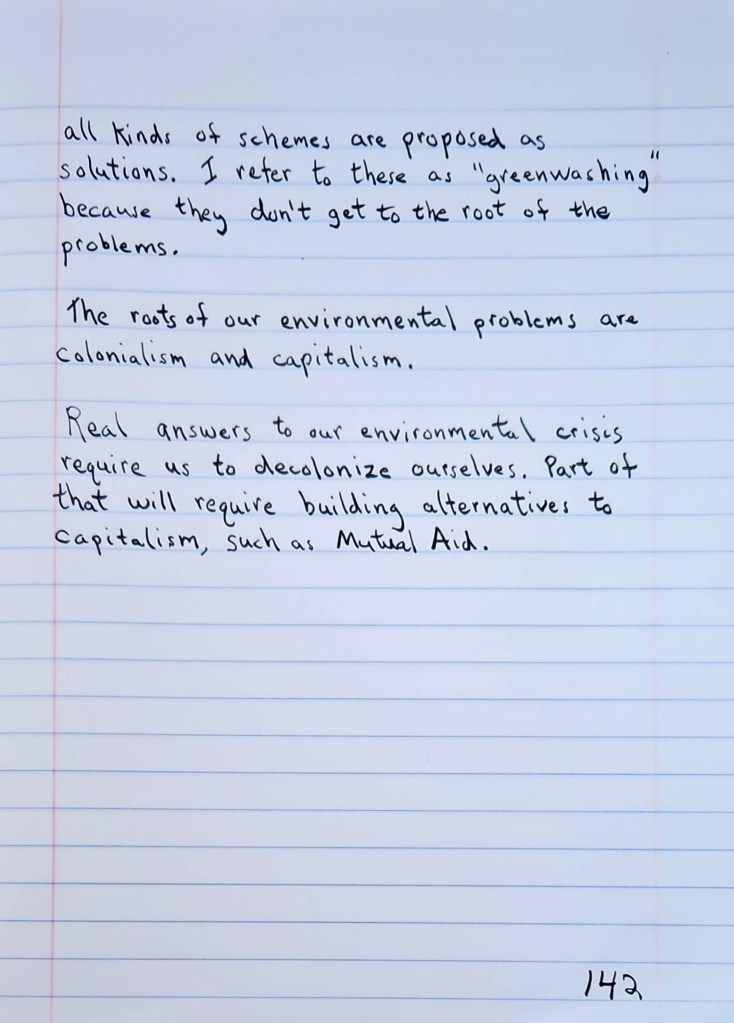 all kinds of schemes are proposed as
solutions. I refer to these as "greenwashing"
because they don't get to the root of the
problems.
The roots of our environmental problems are
colonialism and capitalism.
Real answers to our environmental crisis
require us to decolonize ourselves. Part of
that will require building alternatives to
capitalism, such as Mutual Aid.
142